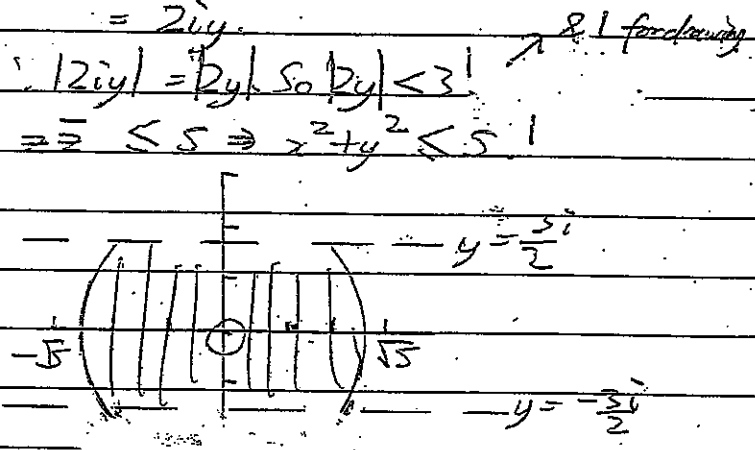 = 2iy.
& 1 for drawing
∴ |2iy| = |2y|. So |2y| < 3 1
z z̄ ≤ 5 ⇒ x² + y² ≤ 5 1
y = 3i/2
-√5 √5
y = -3i/2